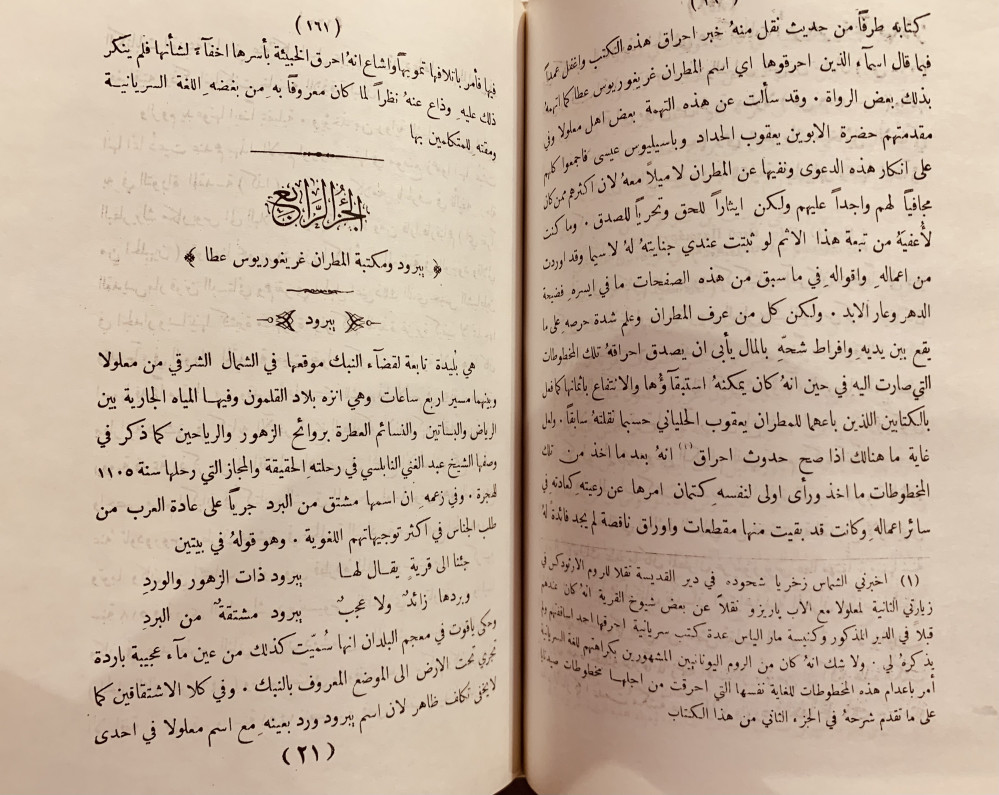 كتابه طرفاً من حديث نقل منهُ خبر احراق هذه الكتب واغفل عمداً
فيما قال اسمآء الذين احرقوها اي اسم المطران غريغوريوس عطا كما اتهمهُ
بذلك بعض الرواة . وقد سألت عن هذه التهمة بعض اهل معلولا وفي
مقدمتهم حضرة الابوين يعقوب الحداد وباسيليوس عيسى فاجمعوا كلهم
على انكار هذه الدعوى ونفيها عن المطران لا ميلاً معهُ لان اكثرهم ممن كان
مجافياً لهم واجداً عليهم ولكن ايثاراً للحق وتحرياً للصدق . وما كنت
لأُعفيَهُ من تبعة هذا الاثم لو ثبتت عندي جنايتهُ لهُ لا سيما وقد اوردت
من اعماله واقواله في ما سبق من هذه الصفحات ما في ايسره فضيحة
الدهر وعار الابد . ولكن كل من عرف المطران وعلم شدة حرصه على ما
يقع بين يديه وافراط شحّه بالمال يأبى ان يصدق احراقهُ تلك المخطوطات
التي صارت اليه في حين انهُ كان يمكنهُ استبقآؤُها والانتفاع باثمانها كما فعل
بالكتابين اللذين باعهما للمطران يعقوب الحلياني حسبما نقلتهُ سابقاً . ولعل
غاية ما هنالك اذا صح حدوث احراق (١) انهُ بعد ما اخذ من تلك
المخطوطات ما اخذ ورأى اولى لنفسه كتمان امرها عن رعيته كعادته في
سائر اعماله وكانت قد بقيت منها مقطعات واوراق ناقصة لم يجد فائدةً لهُ
(١) اخبرني الشماس زخريا شحوده في دير القديسة تقلا للروم الارثوذكس في
زيارتي الثانية لمعلولا مع الاب باريزو نقلاً عن بعض شيوخ القرية انهُ كان عندهم
قبلاً في الدير المذكور وكنيسة مار الياس عدة كتب سريانية احرقها احد اساقفتهم ولم
يذكرهُ لي . ولا شك انهُ كان من الروم اليونانيين المشهورين بكراهتهم للغة السريانية
أمر باعدام هذه المخطوطات للغاية نفسها التي احرقت من اجلها مخطوطات صيدنايا
على ما تقدم شرحهُ في الجزء الثاني من هذا الكتاب
(١٦١)
فيها فأمر باتلافها تمويهاً واشاع انهُ احرق الخبيئة بأسرها اخفآءً لشأنها فلم ينكر
ذلك عليه وذاع عنهُ نظراً لما كان معروفاً به من بغضه اللغة السريانية
ومقته للمتكلمين بها
الجزء الرابع
﴿ يبرود ومكتبة المطران غريغوريوس عطا ﴾
يبرود
هي بليدة تابعة لقضآء النبك موقعها في الشمال الشرقي من معلولا
وبينهما مسير اربع ساعات وهي انزه بلاد القلمون وفيها المياه الجارية بين
الرياض والبساتين والنسائم العطرة بروائح الزهور والرياحين كما ذكر في
وصفها الشيخ عبد الغني النابلسي في رحلته الحقيقة والمجاز التي رحلها سنة ١١٠٥
للهجرة . وفي زعمه ان اسمها مشتق من البرد جرياً على عادة العرب من
طلب الجناس في اكثر توجيهاتهم اللغوية . وهو قولهُ في بيتين
جئنا الى قريةٍ يقال لها يبرود ذات الزهور والوردِ
وبردها زائدٌ ولا عجبٌ يبرود مشتقةٌ من البردِ
وحكى ياقوت في معجم البلدان انها سُمّيَت كذلك من عين مآء عجيبة باردة
تجري تحت الارض الى الموضع المعروف بالنبك . وفي كلا الاشتقاقين كما
لا يخفى تكلف ظاهر لان اسم يبرود ورد بعينه مع اسم معلولا في احدى
(٢١)